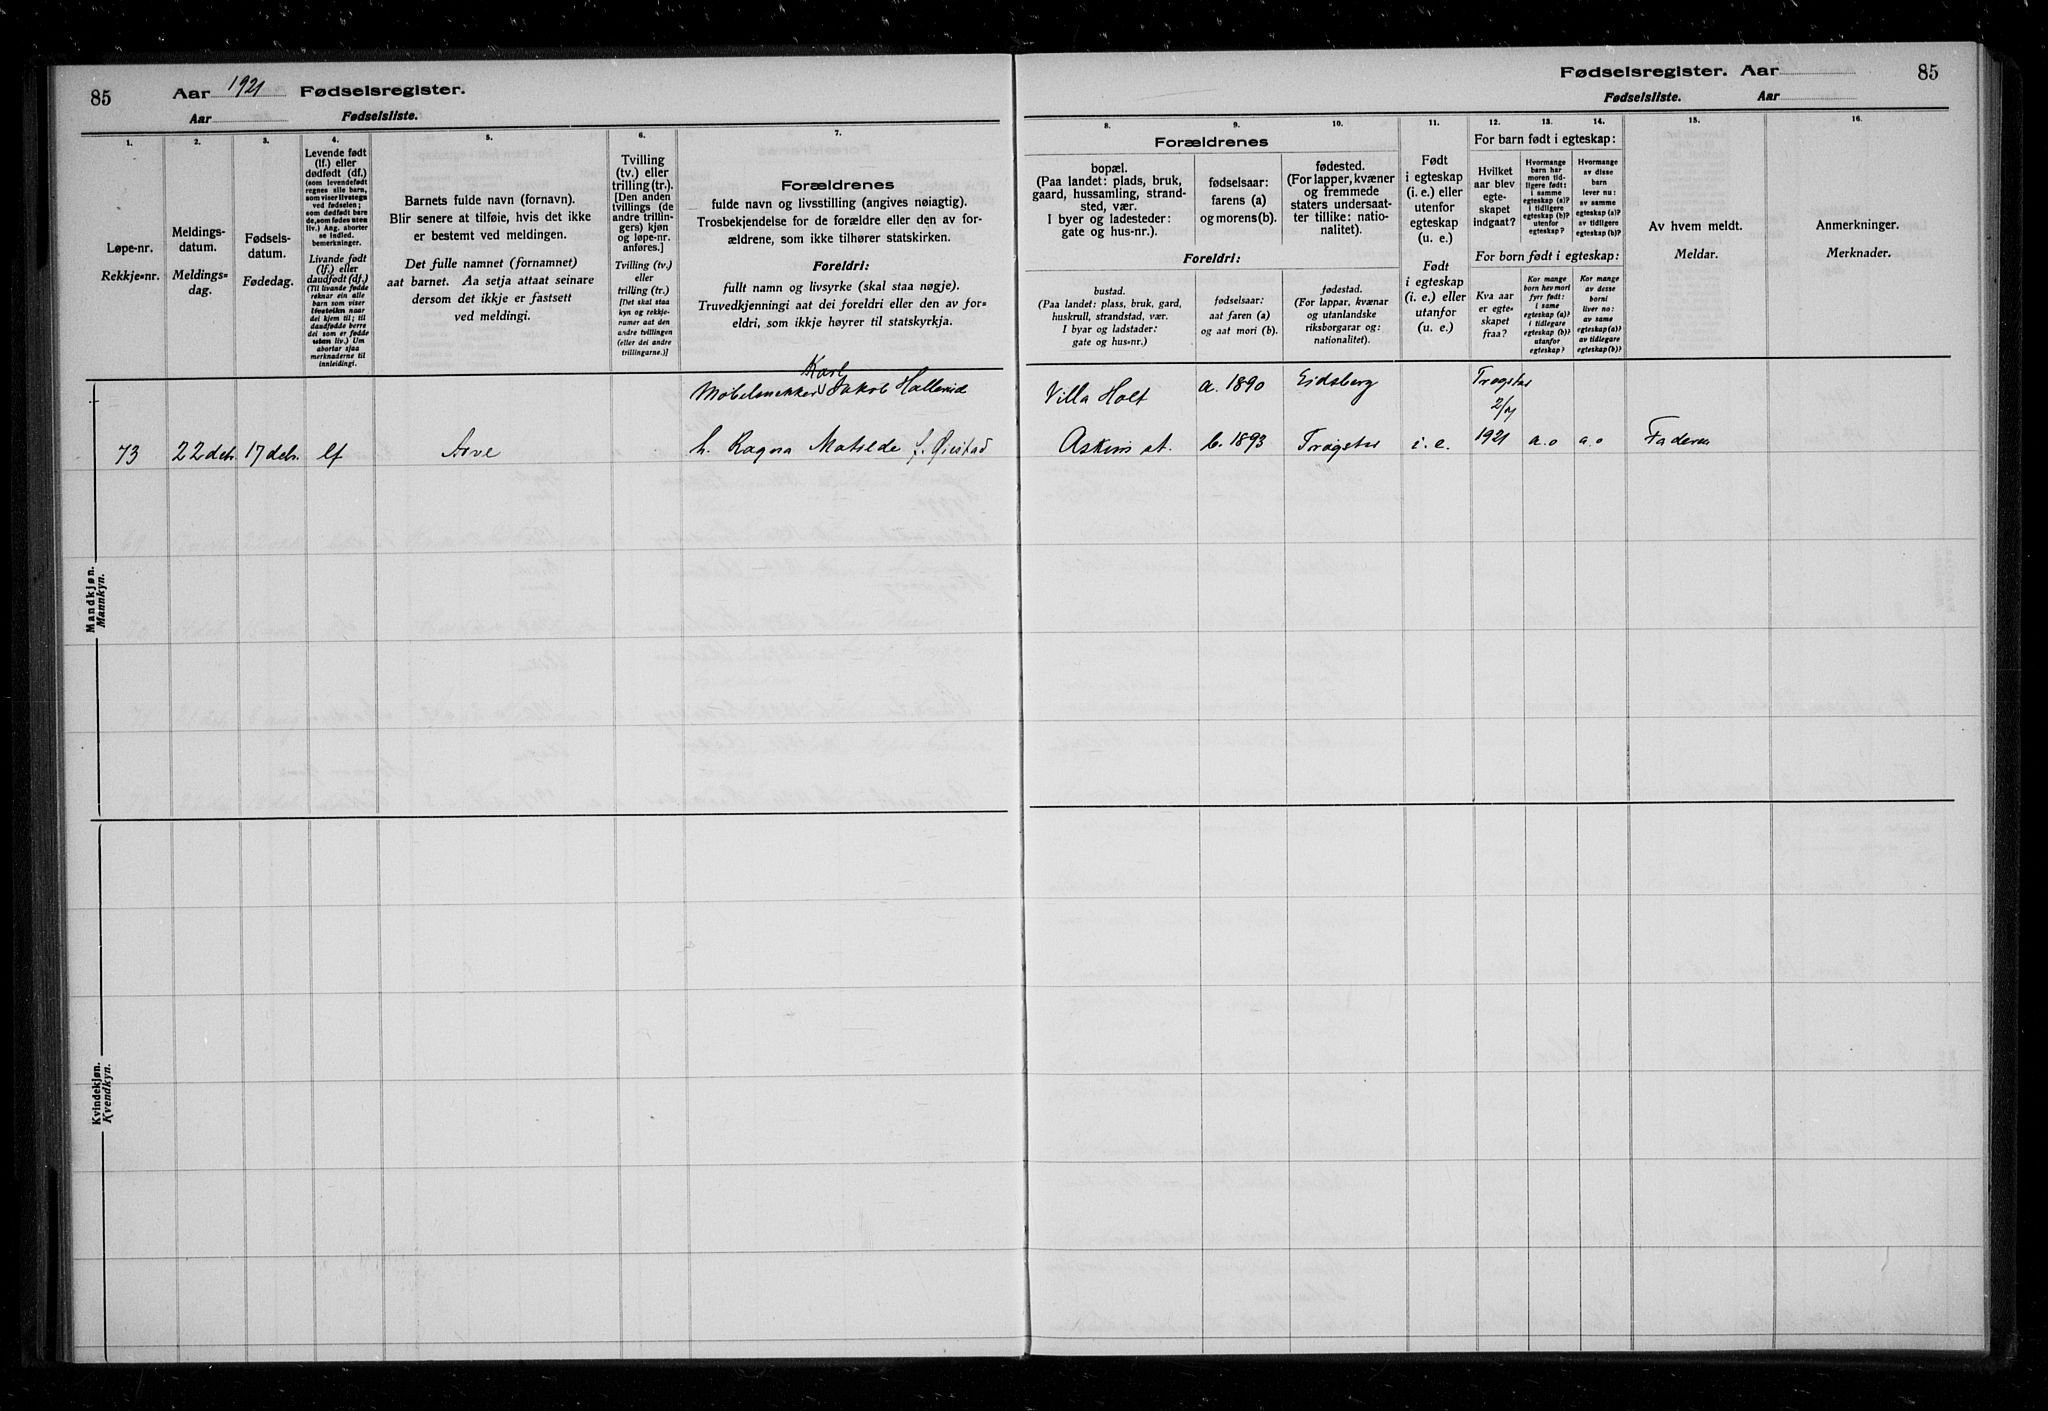 85
Aar 1921 Fødselsregister.
Aar Fødselsliste.
1. 2. 3. 4. 5. 6. 7.
Løpe-nr.
Rekkje=nr.
Meldings-
datum.
Meldings=
dag.
Fødsels-
datum.
Fødedag.
Levende født
(lf.) eller
dødfødt (df.)
(som levendefødt
regnes alle barn,
som viser livstegn
ved fødselen;
som dødfødt bare
de, som fødes uten
liv.) Ang. aborter
se indled.
bemerkninger.
Livande født
(lf.) eller
daudfødt (df.)
(Til livande fødde
reknar ein alle
barn som viser
livsteikn naar
dei kjem til; til
daudfødde berre
dei som er fødde
utan liv.) Um
abortar sjaa
merknaderne til
innleidingi.
Barnets fulde navn (fornavn).
Blir senere at tilføie, hvis det ikke
er bestemt ved meldingen.
Det fulle namnet (fornamnet)
aat barnet. Aa setja attaat seinare
dersom det ikkje er fastsett
ved meldingi.
Tvilling
(tv.) eller
trilling (tr.).
[Den anden
tvillings (de
andre trillin-
gers) kjøn
og løpe-nr.
anføres.]
Tvilling (tv.)
eller
trilling (tr.)
[Det skal staa
kyn og rekkje=
numer aat den
andre tvillingen
(eller dei andre
trillingarne.)]
Forældrenes
fulde navn og livsstilling (angives nøiagtig).
Trosbekjendelse for de forældre eller den av for-
ældrene, som ikke tilhører statskirken.
Foreldri:
fullt namn og livsyrke (skal staa nøgje).
Truvedkjenningi aat dei foreldri eller den av for=
eldri, som ikkje høyrer til statskyrkja.
Mandkjøn.
Mannkyn.
Karl
Møbelsnekker Jakob Hallerud
73 22 debr. 17 debr. lf Arve h. Ragna Matilde f. Øiestad
Kvindekjøn.
Kvendkyn.
Fødselsregister. Aar 85
Fødselsliste. Aar
8. 9. 10. 11. 12. 13. 14. 15. 16.
Forældrenes
bopæl.
(Paa landet: plads, bruk,
gaard, hussamling, strand-
sted, vær.
I byer og ladesteder:
gate og hus-nr.).
fødselsaar:
farens (a)
og morens (b).
fødested.
(For lapper, kvæner
og fremmede
staters undersaat-
ter tillike: natio-
nalitet).
Foreldri:
bustad.
(Paa landet: plass, bruk, gard,
huskrull, strandstad, vær.
I byar og ladstader:
gate og hus=nr.)
fødselsaar:
aat faren (a)
og aat mori (b).
fødestad.
(For lappar, kvænar
og utanlandske
riksborgarar og:
nationalitet).
Født
i egteskap
(i. e.) eller
utenfor
egteskap
(u. e.)
Født
i egteskap
(i. e.) eller
utanfor
(u. e.)
For barn født i egteskap:
Hvilket
aar blev
egte-
skapet
indgaat?
Hvormange
barn har
moren tid-
ligere født:
i samme
egteskap (a)?
i tidligere
egteskap (b)?
utenfor
egteskap?
Hvormange
av disse
barn
lever nu:
av samme
egteskap (a)?
av tidligere
egteskap (b)?
For born født i egteskap:
Kva aar
er egte=
skapet
fraa?
Kor mange
born hev mori
fyrr født:
i same
egteskap (a)?
i tidlegare
egteskap (b)?
utanfor
egteskap?
Kor mange
av desse
borni
liver no:
av same
egteskap (a)?
av tidlegare
egteskap (b)?
Av hvem meldt.
Meldar.
Anmerkninger.
Merknader.
Villa Holt a. 1890 Eidsberg Trøgstad
2/7
Askim st. b. 1893 Trøgstad i. e. 1921 a. o a. o Faderen